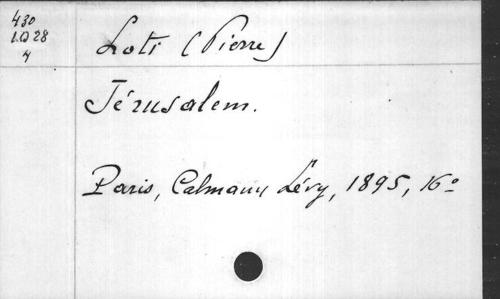 430
1.Q 28
4
Loti (Pierre)
Jérusalem.
Paris, Calmann Lévy, 1895, 16º